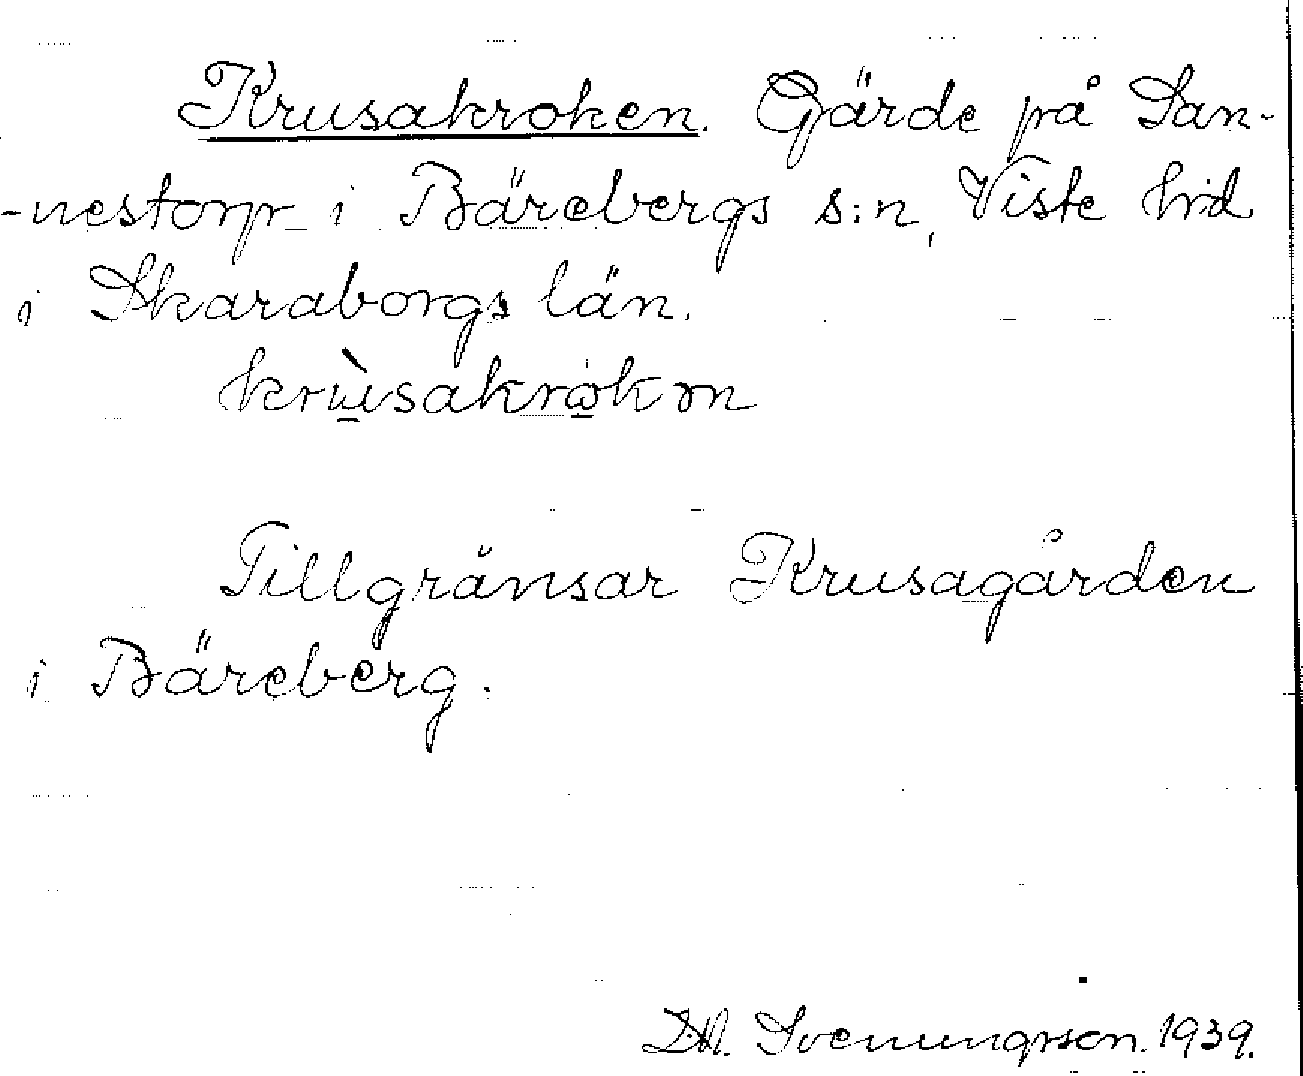 Krusakroken. Gärde på San-
-nestorp i Bärebergs s:n, Viste hrd
i Skaraborgs län.
krùsakrökən
Tillgränsar Krusagården
i Bäreberg.
Svenungsson. 1939.